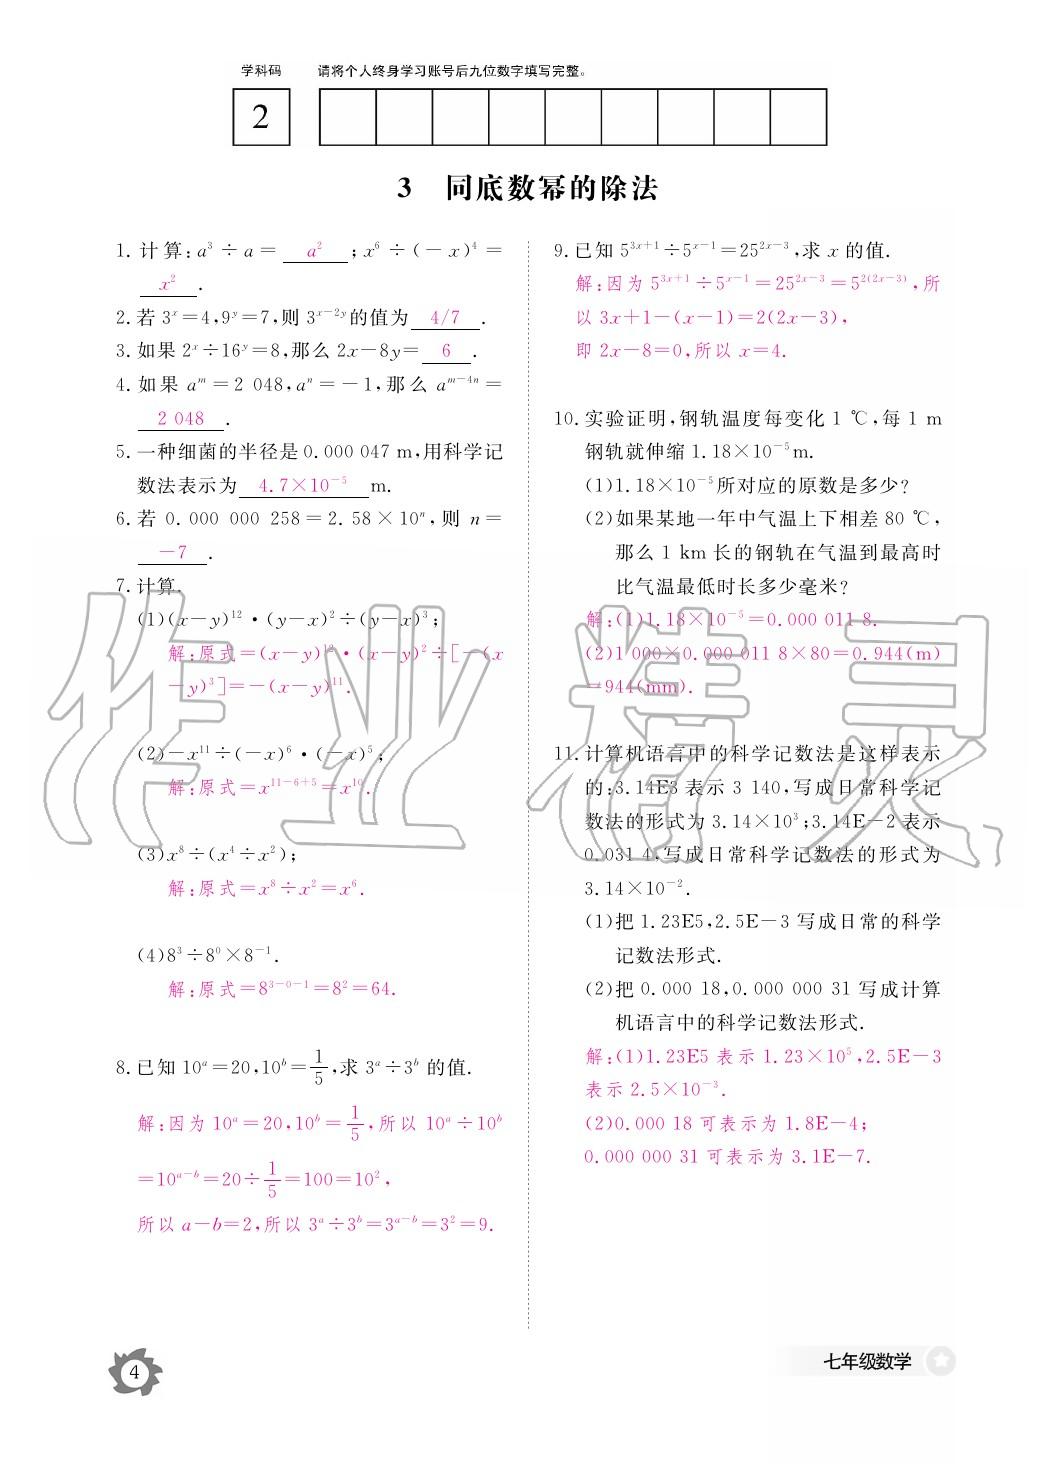 学科码 请将个人终身学习账号后九位数字填写完整。
2
3 同底数幂的除法
1. 计算:a³÷a=a²;x⁶÷(-x)⁴=
x².
2. 若 3ˣ=4,9ʸ=7,则 3ˣ⁻²ʸ的值为 4/7 .
3. 如果 2ˣ÷16ʸ=8,那么 2x-8y= 6 .
4. 如果 aᵐ=2 048,aⁿ=-1,那么 aᵐ⁻⁴ⁿ=
2 048 .
5. 一种细菌的半径是0.000 047 m,用科学记
数法表示为 4.7×10⁻⁵ m.
6. 若 0.000 000 258=2.58×10ⁿ,则 n=
-7 .
7. 计算.
(1)(x-y)¹²·(y-x)²÷(y-x)³;
解:原式=(x-y)¹²·(x-y)²÷[-(x
-y)³]=-(x-y)¹¹.
(2)-x¹¹÷(-x)⁶·(-x)⁵;
解:原式=x¹¹⁻⁶⁺⁵=x¹⁰.
(3)x⁸÷(x⁴÷x²);
解:原式=x⁸÷x²=x⁶.
(4)8³÷8⁰×8⁻¹.
解:原式=8³⁻⁰⁻¹=8²=64.
8. 已知 10ᵃ=20,10ᵇ=1/5,求 3ᵃ÷3ᵇ 的值.
解:因为 10ᵃ=20,10ᵇ=1/5,所以 10ᵃ÷10ᵇ
=10ᵃ⁻ᵇ=20÷1/5=100=10²,
所以 a-b=2,所以 3ᵃ÷3ᵇ=3ᵃ⁻ᵇ=3²=9.
9. 已知 5³ˣ⁺¹÷5ˣ⁻¹=25²ˣ⁻³,求 x 的值.
解:因为 5³ˣ⁺¹÷5ˣ⁻¹=25²ˣ⁻³=5²⁽²ˣ⁻³⁾,所
以 3x+1-(x-1)=2(2x-3),
即 2x-8=0,所以 x=4.
10. 实验证明,钢轨温度每变化 1 ℃,每 1 m
钢轨就伸缩 1.18×10⁻⁵m.
(1)1.18×10⁻⁵所对应的原数是多少?
(2)如果某地一年中气温上下相差 80 ℃,
那么 1 km 长的钢轨在气温到最高时
比气温最低时长多少毫米?
解:(1)1.18×10⁻⁵=0.000 011 8.
(2)1 000×0.000 011 8×80=0.944(m)
=944(mm).
11. 计算机语言中的科学记数法是这样表示
的:3.14E3 表示 3 140,写成日常科学记
数法的形式为 3.14×10³;3.14E-2 表示
0.031 4,写成日常科学记数法的形式为
3.14×10⁻².
(1)把 1.23E5,2.5E-3 写成日常的科学
记数法形式.
(2)把 0.000 18,0.000 000 31 写成计算
机语言中的科学记数法形式.
解:(1)1.23E5 表示 1.23×10⁵,2.5E-3
表示 2.5×10⁻³.
(2)0.000 18 可表示为 1.8E-4;
0.000 000 31 可表示为 3.1E-7.
作业精灵
4
七年级数学